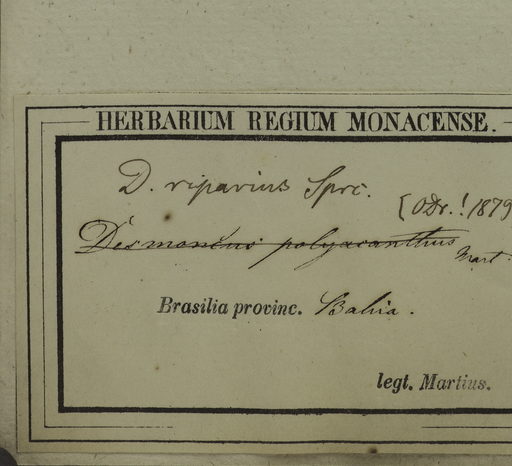 HERBARIUM REGIUM MONACENSE.
D. riparius Sprc.
[ODr.! 1879
Desmoncus polyacanthus
Mart.
Brasilia provinc. Bahia.
legt. Martius.